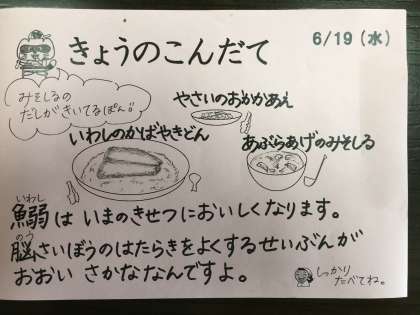 きょうのこんだて
6/19（水）
みそしるの
だしがきいてるぽん!!
やさいのおかかあえ
いわしのかばやきどん
あぶらあげのみそしる
いわし
鰯は いまのきせつにおいしくなります。
のう
脳さいぼうのはたらきをよくするせいぶんが
おおい さかななんですよ。
しっかり
たべてね。